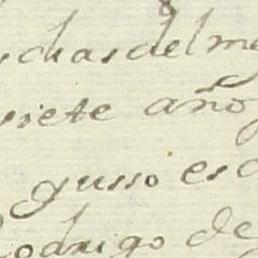 dias del me
siete año
gusso es
Rodrigo de